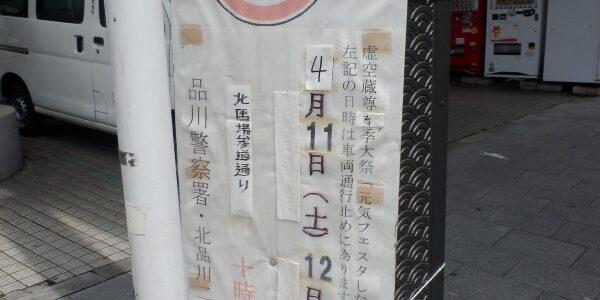 虚空蔵尊春季大祭「元気フェスタしな
左記の日時は車両通行止めに為ります
4月11日(土)12日
十時
北馬場参道通り
品川警察署・北品川二